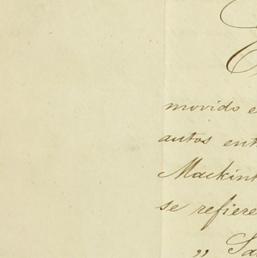 movido e
autos ent
Mackint
se refiere
„ Sa